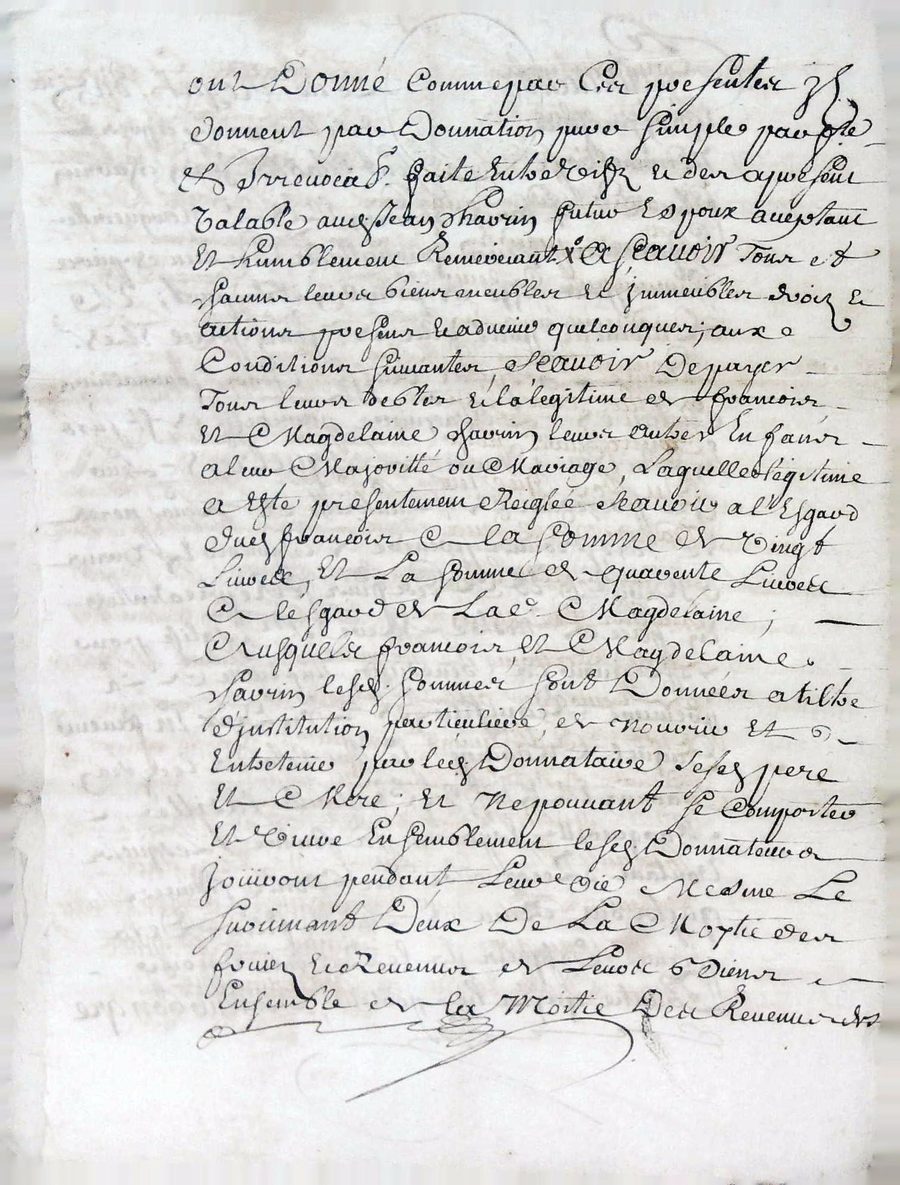 ont Donné Comme par Ces presentes Jls
donnent par Donnation pure simple parfte
et Irrevocab. faite Entre vifz et des apresent
Valable audt Jean havrin futur Espoux aceptant
Et humblement Remerciant Sçauoir Tous et
chacuns leurs biens meubles et jmmeubles droiz et
actions presens et aduenir quelconques; aux
Conditions suiuantes, Scauoir De payer
Tous leurs debtes et la légitime de francois
Et Magdelaine havrin leurs autres Enfans
a leur Majoritté ou Mariage, Laquelle légitime
a Esté presentement Reiglée Scauoir a l'Esgard
dud francois a la somme de Vingt
Liures, Et La somme de quarente Liures
a lesgard de Lad. Magdelaine;
Ausquels francois, Et Magdelaine
havrin lesd. sommes sont Données a tiltre
d'institution particuliere, de nourir et
Entretenir par led Donnataire sesd pere
Et Mere; Et Ne pouuant se Comporter
Et Viure Ensemblement lesd Donnateurs
joüiront pendant Leur Vie Mesme Le
suruiuant Deux De La Moytié des
fruiez et Reuenus de Leurs Biens
Ensemble de la Moitié Des Reuenus des